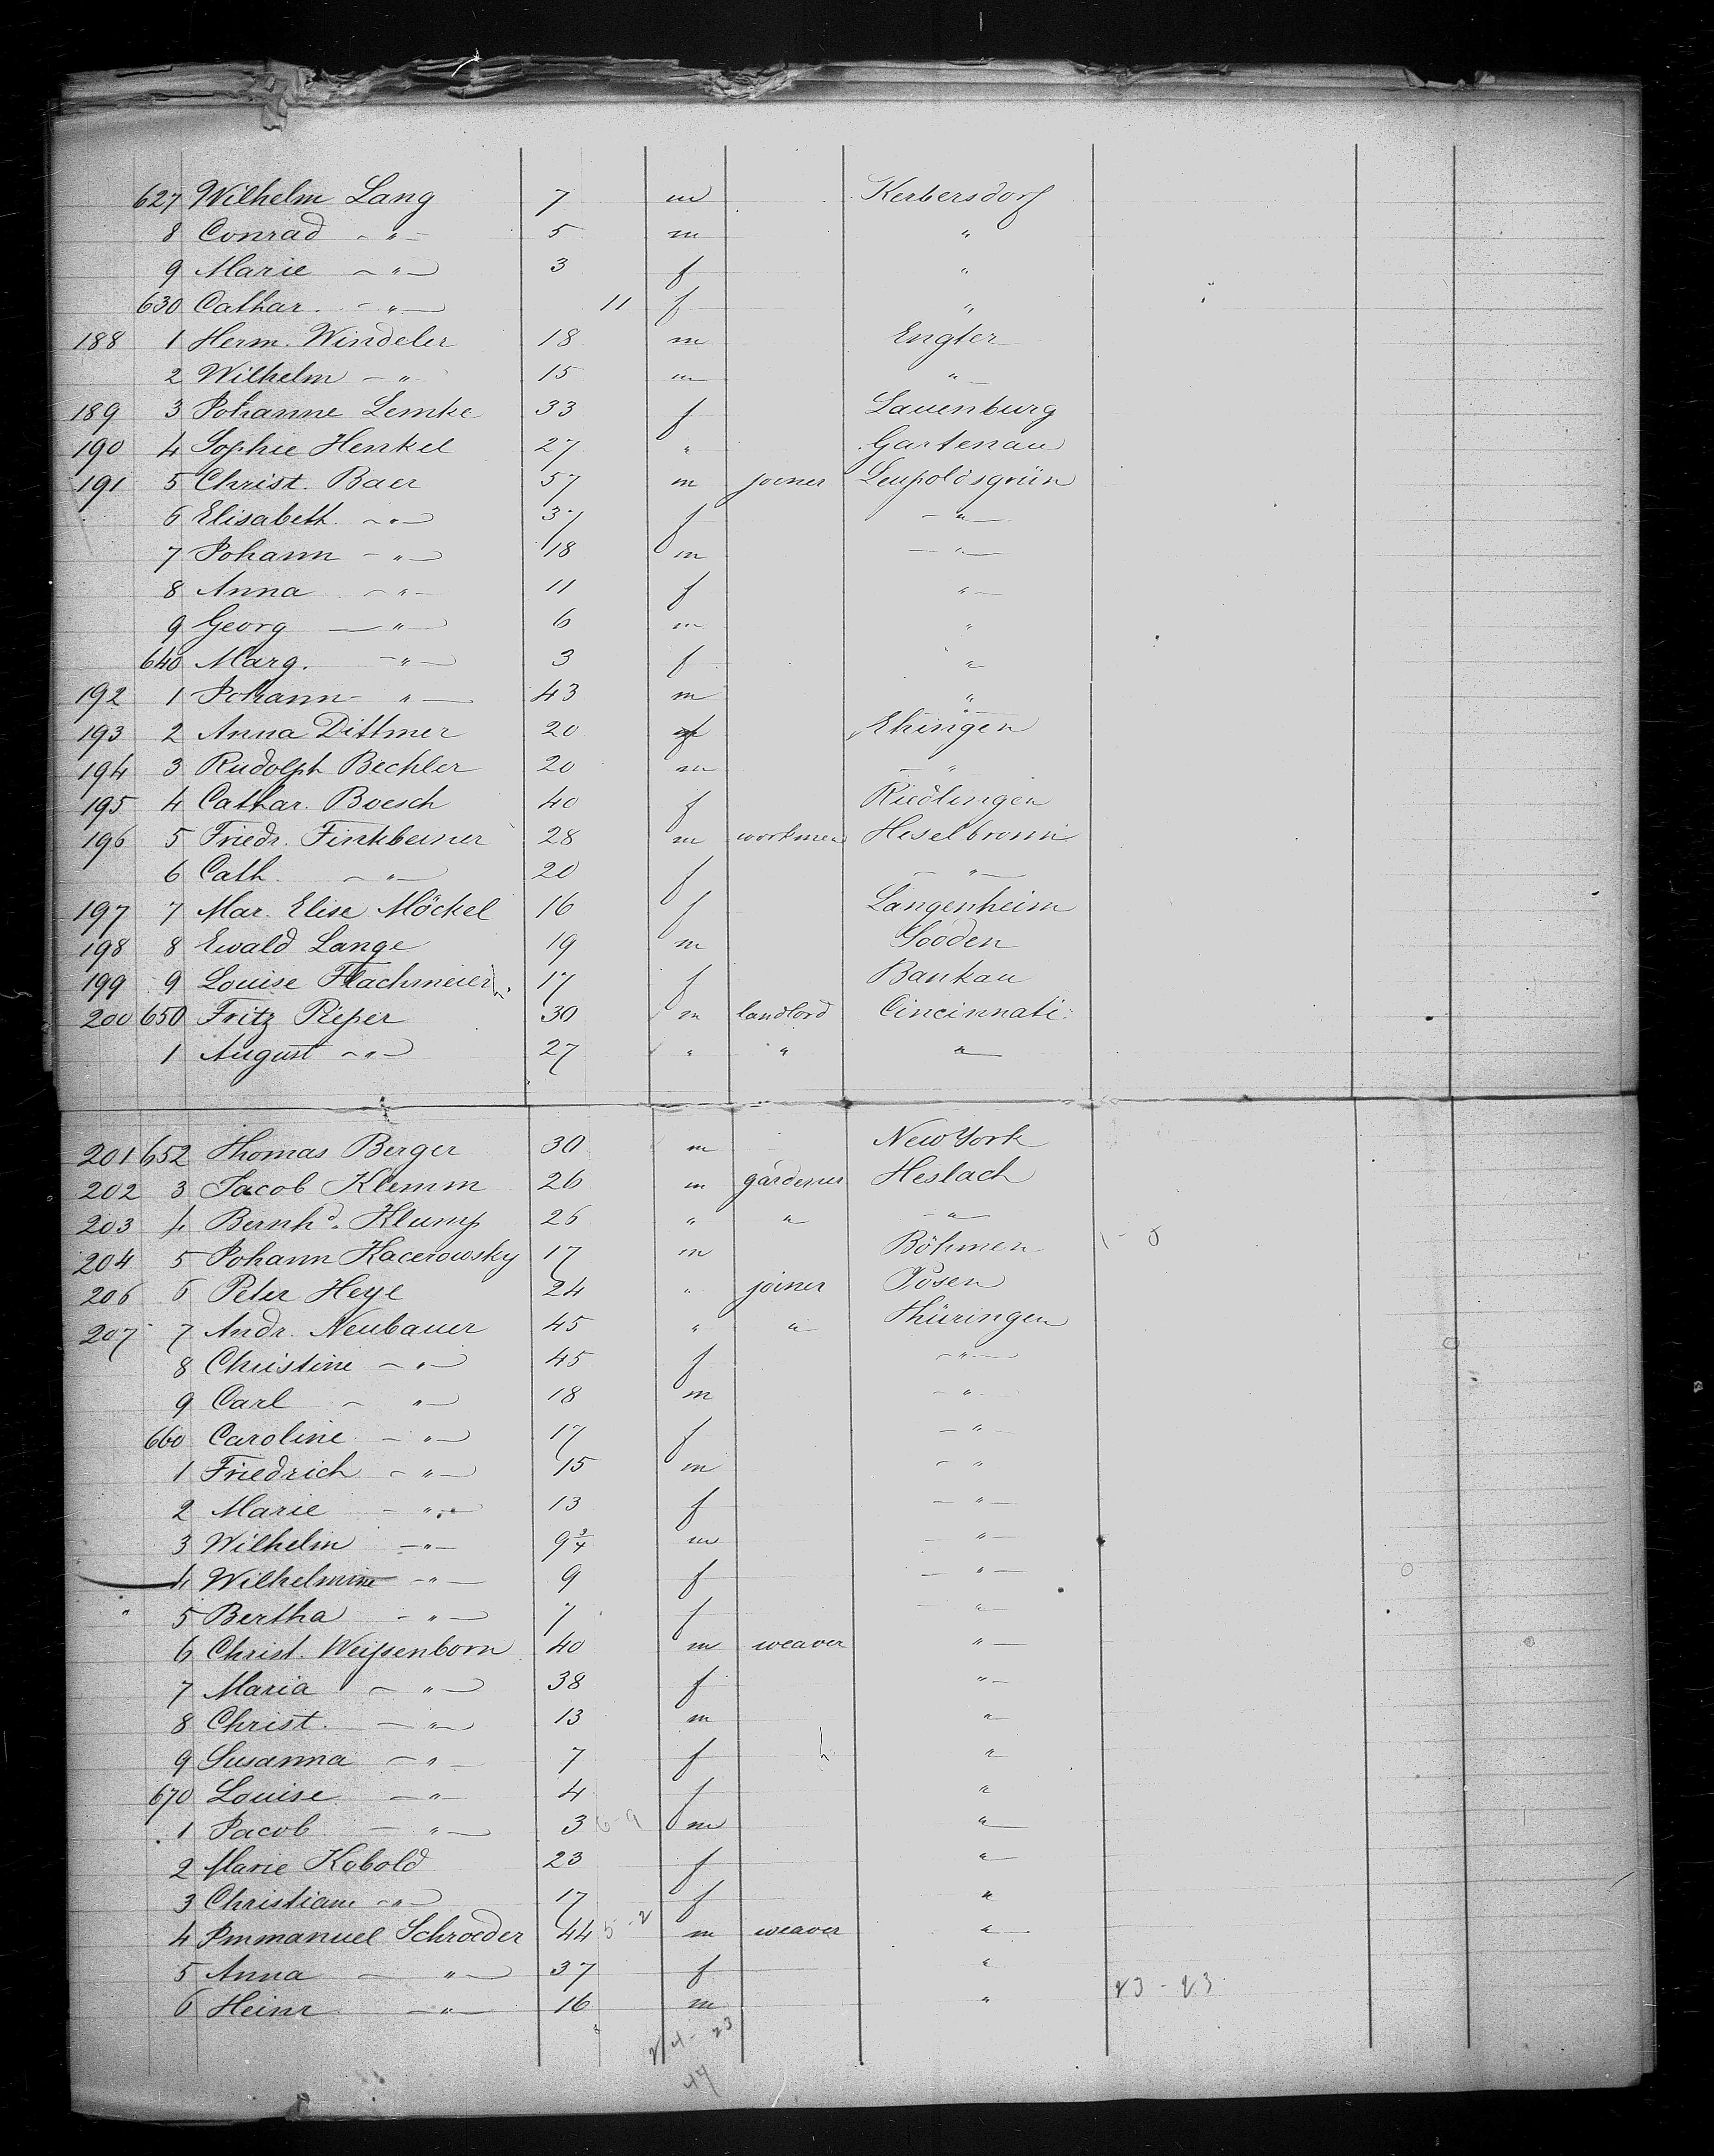 627 Wilhelm Lang 7 m Kerbersdorf
8 Conrad - " - 5 m "
9 Marie - " - 3 f "
630 Cathar. - " - 11 f "
188 1 Herm. Windeler 18 m Engter
2 Wilhelm - " 15 m "
189 3 Johanne Lemke 33 f Lauenburg
190 4 Sophie Henkel 27 " Gartenau
191 5 Christ. Baer 57 m joiner Leupoldsgrün
6 Elisabeth - " - 37 f - " -
7 Johann - " - 18 m - " -
8 Anna - " - 11 f " -
9 Georg - " - 6 m "
640 Marg. - " - 3 f "
192 1 Johann - " - 43 m "
193 2 Anna Dittmer 20 f Ehingen
194 3 Rudolph Bechler 20 m - "
195 4 Cathar. Boesch 40 f Riedlingen
196 5 Friedr. Finkbeiner 28 m workmen Heselbronn
6 Cath. - " - 20 f - " -
197 7 Mar. Elise Möckel 16 f Langenheim
198 8 Ewald Lange 19 m Sooden
199 9 Louise Flachmeier 17 f Bankau
200 650 Fritz Pieper 30 m landlord Cincinnati
1 August - " - 27 " " "
201 652 Thomas Berger 30 m New York
202 3 Jacob Klemm 26 m gardener Heslach
203 4 Bernhd. Klump 26 " " - " -
204 5 Johann Kacerowsky 17 m Böhmen
206 6 Peter Heye 24 " joiner Posen
207 7 Andr. Neubauer 45 " " Thüringen
8 Christine - " - 45 f - " -
9 Carl - " - 18 m - "
660 Caroline - " - 17 f - " -
1 Friedrich - " - 15 m - "
2 Marie - " - 13 f - " -
3 Wilhelm - " - 9 3/4 m - " -
4 Wilhelmine - " - 9 f - " -
5 Bertha - " - 7 f - " -
6 Christ. Weißenborn 40 m weaver " -
7 Maria - " - 38 f " -
8 Christ. - " - 13 m "
9 Susanna - " - 7 f "
670 Louise - " - 4 f "
1 Jacob - " - 3 6-9 m "
2 Marie Kobold 23 f "
3 Christiane - " - 17 f "
4 Immanuel Schroeder 44 5-2 m weaver "
5 Anna - " - 37 f "
6 Heinr - " - 16 m " 23 - 23
24 - 23
47